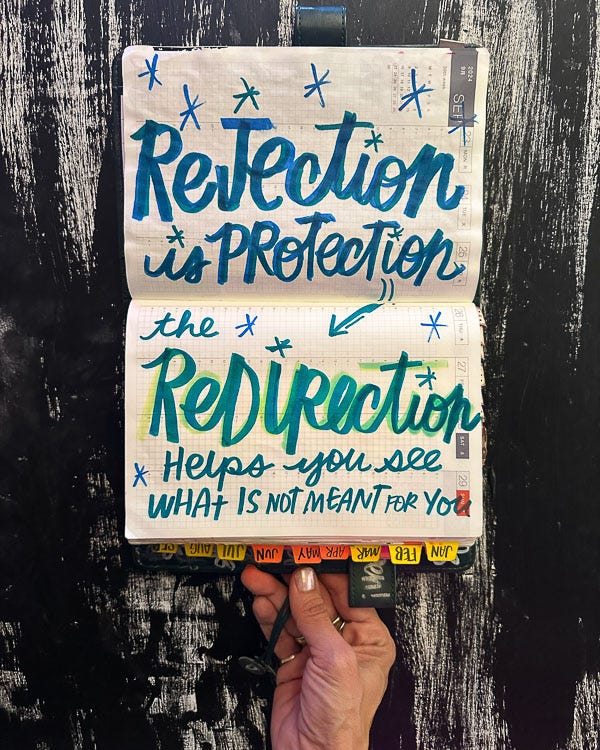 Rejection
is Protection
the
Redirection
Helps you see
What is not meant for you
2024
9月
SEP
MON
25
26
THU
27
SAT
29
SEP
AUG
JUL
JUN
MAY
APR
MAR
FEB
JAN